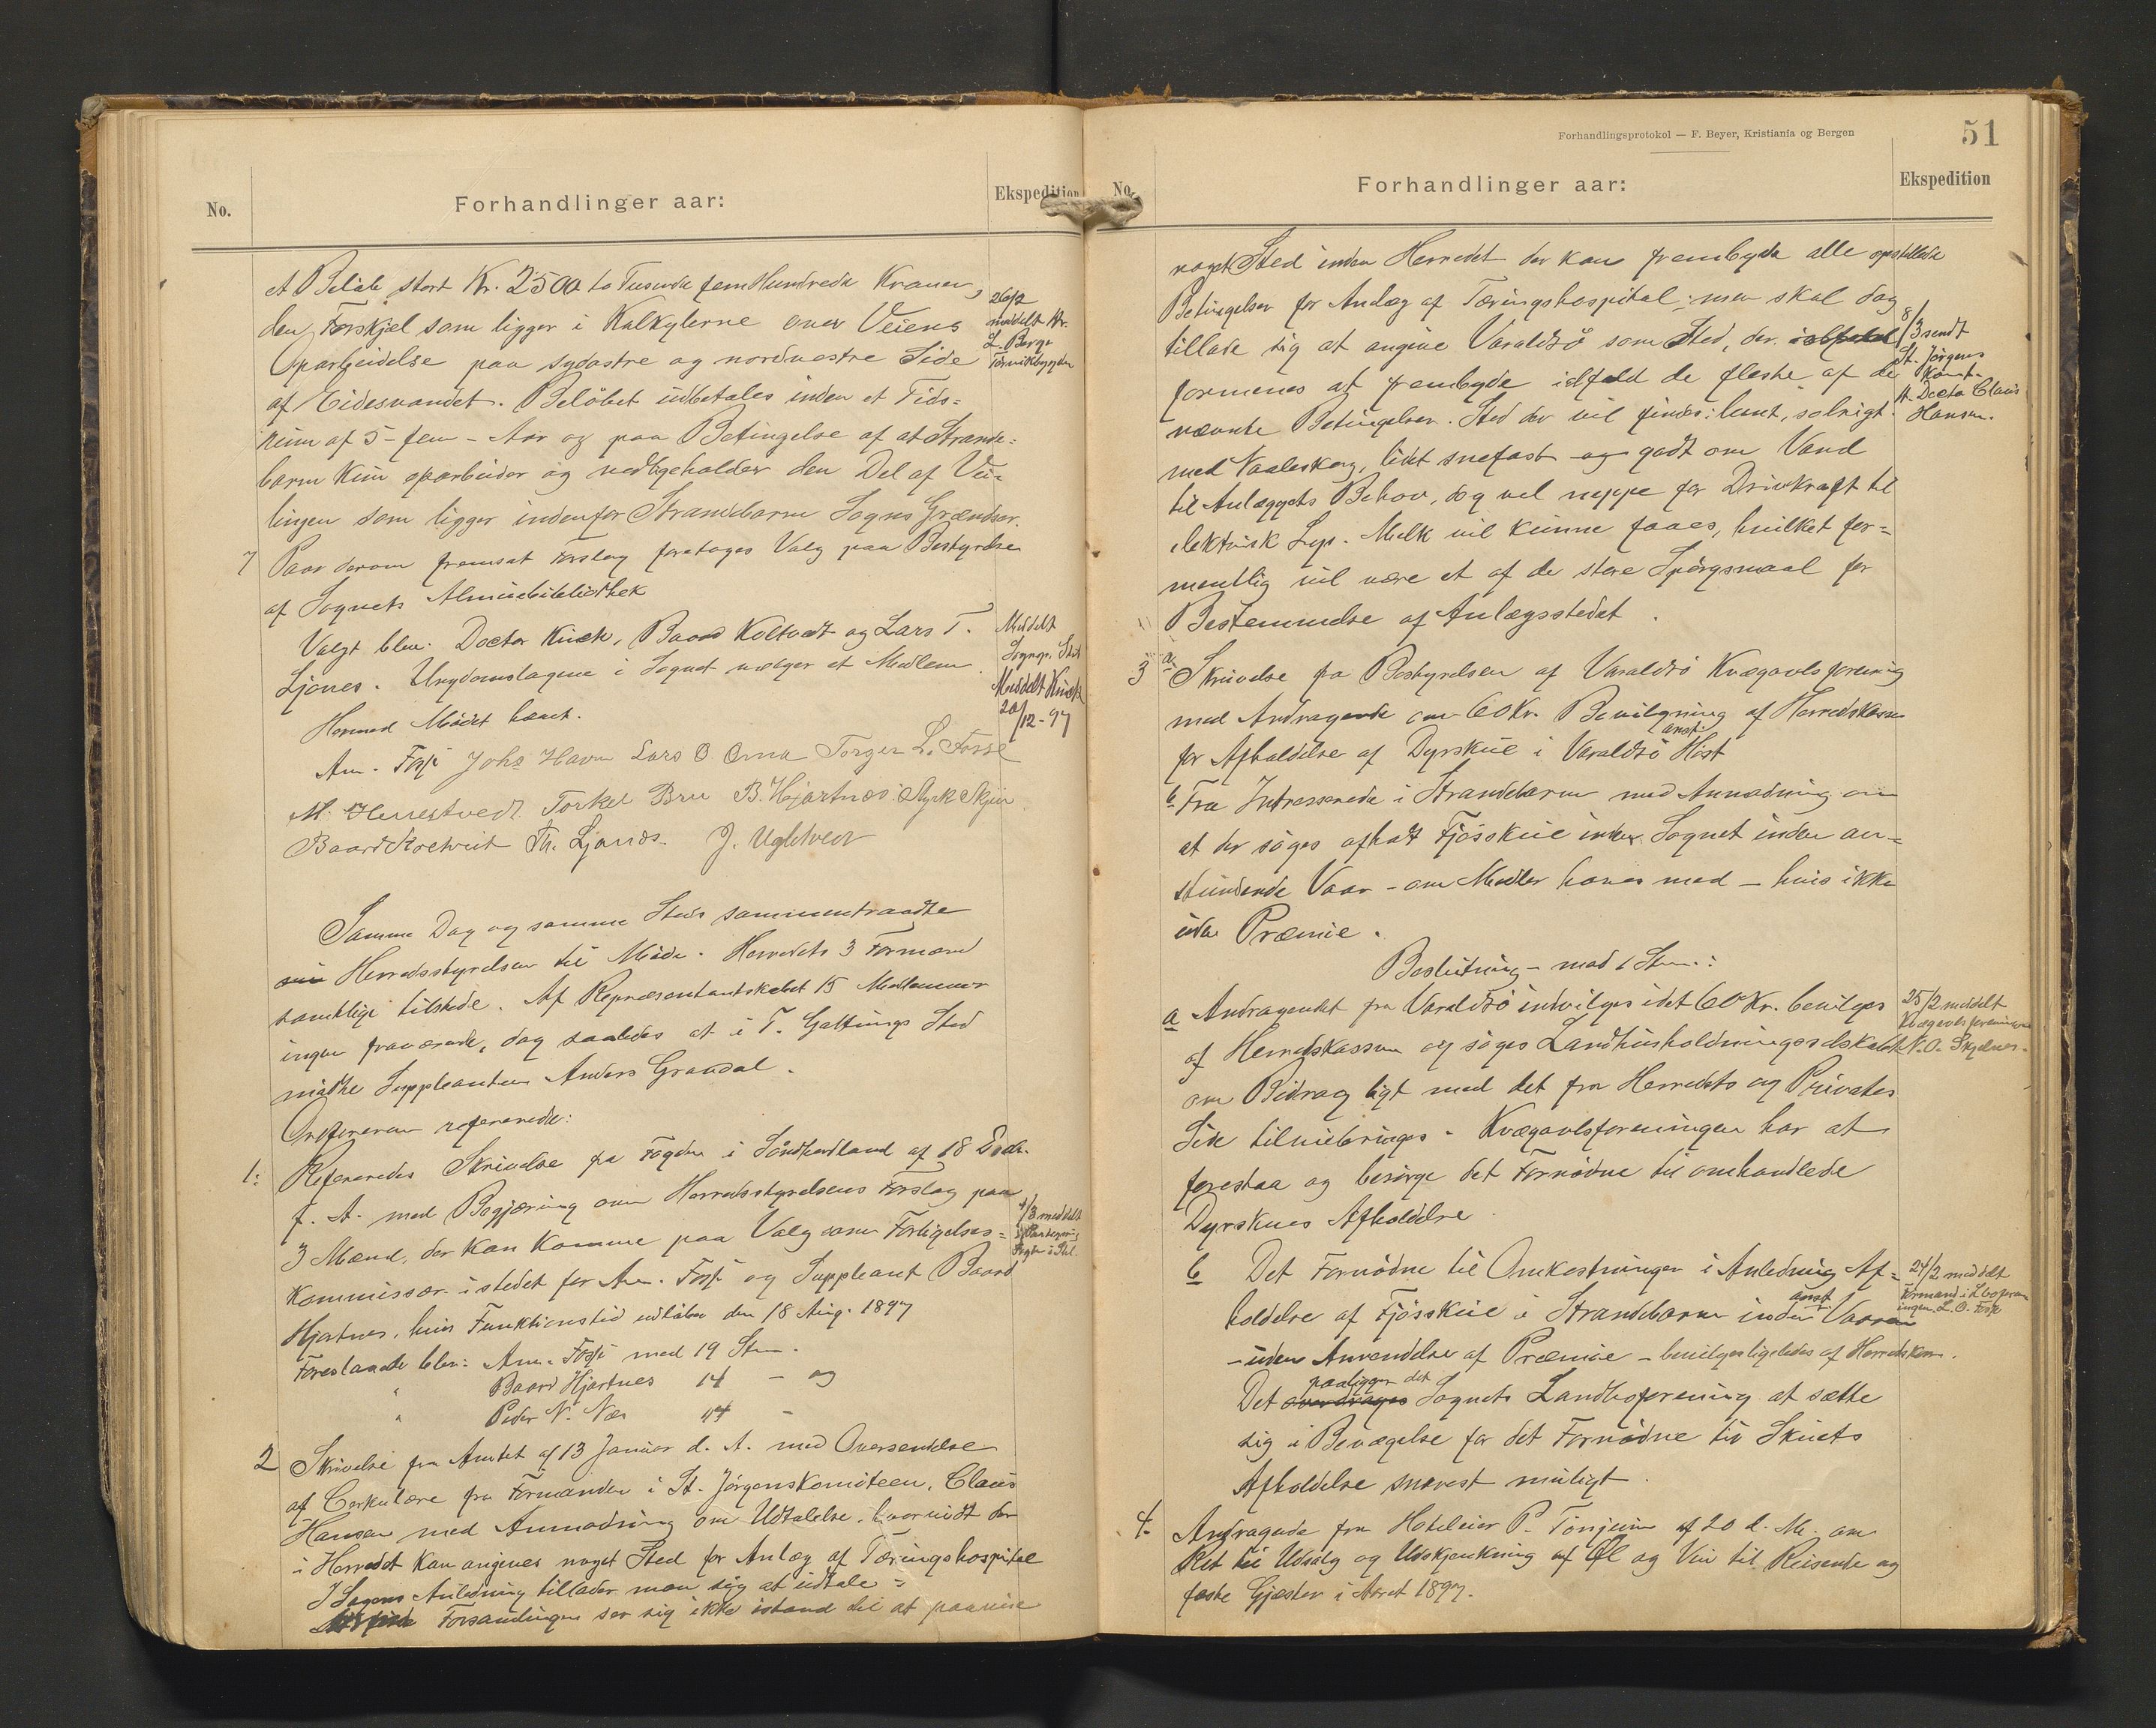 No.
Forhandlinger aar:
Ekspedition
et Beløb stort Kr. 2500 to Tusende fem Hundrede Kroner,
den Forskjel som ligger i Kalkylerne over Veiens
Oparbeidelse paa sydøstre og nordvestre Side
af Eidesvandet. Beløbet udbetales inden et Tids-
rum af 5 - fem - Aar og paa Betingelse af at Strande-
barm kun oparbeider og vedligeholder den Del af Vei-
lingen som ligger indenfor Strandebarm Sogns Grændser.
26/2
meddelt Hr.
L. Berge
Tørvikbygden
7 Paa derom fremsat Forslag foretoges Valg paa Bestyrelse
af Sognets Almuebibliothek
Valgt blev: Doctor Knech, Baard Koltvedt og Lars T.
Ljones. Ungdomslagene i Sognet vælger et Medlem.
Meddelt
Sognepr.
Meddelt Knech
20/12-97
Hermed Mødet hævet.
Am. Fosse Johs Havn Lars O Oma Torger L. Fosse
M. Herrestvedt Torkel Bru B. Hjartnes Styrk Skjeie
Baard Koltveit Th. Ljones. J. Ugletveit
Samme Dag og samme Steds sammentraadte
Herredsstyrelsen til Møde. Herredets 3 Formænd
samtlige tilstede. Af Repræsentantskabet 15 Medlemmer
ingen fraværende, dog saaledes at i T. Galtungs Sted
mødte Suppleanten Anders Graadal.
Ordføreren refererede:
1: Refereredes Skrivelse fra Fogden i Søndhordland af 18 Decbr.
f. A. med Begjæring om Herredsstyrelsens Forslag paa
3 Mænd, der kan komme paa Valg som Forligelses-
kommissær istedet for Am. Fosse og Suppleant Baard
Hjartnes, hvis Funktionstid udløber den 18 Aug. 1897
Foreslaaede blev: Am. Fosse med 19 Stem.
" Baard Hjartnes 14 - og
" Peder N. Næs 14 -
2 Skrivelse fra Amtet af 13 Januar d. A. med Oversendelse
af Cerkulære fra Formanden i St. Jørgenskomiteen, Claus
Hansen med Anmodning om Udtalelse, hvorvidt der
i Herredet kan angives noget Sted for Anlæg af Tæringshospital
I Sagens Anledning tillader man sig at udtale:
Forsamlingen ser sig ikke istand til at paavise
Forhandlingsprotokol — F. Beyer, Kristiania og Bergen
51
No.
Forhandlinger aar:
Ekspedition
noget Sted inden Herredet der kan frembyde alle opstillede
Betingelser for Anlæg af Tæringshospital; men skal dog
tillade sig at angive Varaldsø som Sted, der
formenes at frembyde ialfald de fleste af de
nævnte Betingelser. Sted der vil findes: lunt, solrigt
med Naaleskog, lidet snefast og godt om Vand
til Anlæggets Behov, dog vel neppe for Drivkraft til
elektrisk Lys. Melk vil kunne faaes, hvilket for-
mentlig vil være et af de store Spørgsmaal for
Bestemmelse af Anlægsstedet.
8/3 sendt
St. Jørgens
Komt.
v. Doctor Claus
Hansen.
3 a Skrivelse fra Bestyrelsen af Varaldsø Kvægavlsforening
med Andragende om 60 Kr. Bevilgning af Herredskassen
for Afholdelse af Dyrskue i Varaldsø anst. Høst
b Fra Intresserede i Strandebarm med Anmodning om
at der søges afholdt Fjøsskue inden Sognet inden an-
stundende Vaar - om Midler haves med - hvis ikke
uden Præmie.
Beslutning - med 1 Stem.:
a Andragendet fra Varaldsø indvilges idet 60 Kr. bevilges
af Herredskassen og søges Landhusholdningsselskabet
om Bidrag ligt med det fra Herredets og Privates
Side tilveiebringes. Kvægavlsforeningen har at
forestaa og besørge det Fornødne til omhandlede
Dyrskues Afholdelse.
25/2 meddelt
Kvægavlsforeningen
N. O. Skjelnes.
b Det Fornødne til Omkostninger i Anledning Af-
holdelse af Fjøsskue i Strandebarm inden anst. Vaar
- uden Anvendelse af Præmie - bevilges ligeledes af Herredskassen.
Det overdrages paaligger det Sognets Landboforening at sætte
sig i Bevægelse for det Fornødne til Skuets
Afholdelse snarest muligt.
24/2 meddelt
Formand i Lboforen-
ingen L. O. Fosse
4. Andragende fra Hoteleier P. Tonjeim af 20 d. M. om
Ret til Udsalg og Udskjenkning af Øl og Vin til Reisende og
faste Gjæster i Aaret 1897.